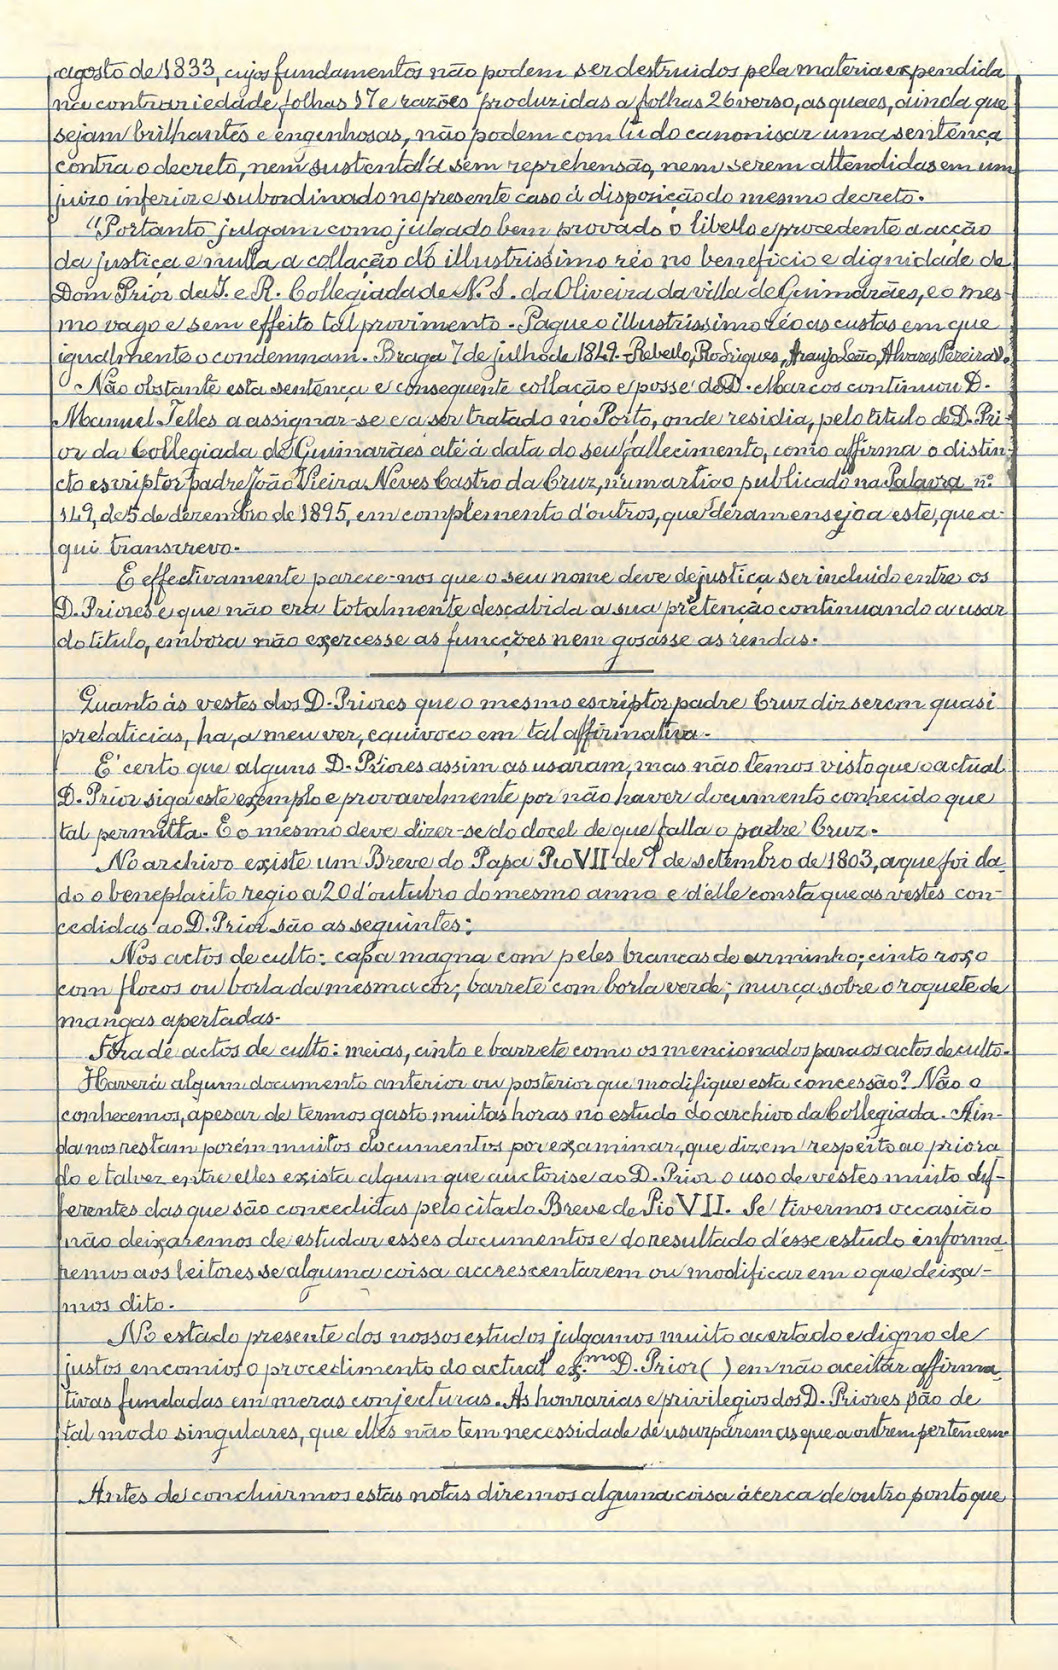 agosto de 1833, cujos fundamentos não podem ser destruidos pela materia expendida
na contrariedade folhas 17 e razões produzidas a folhas 26 verso, as quaes, ainda que
sejam brilhantes e engenhosas, não podem com tudo canonisar uma sentença
contra o decreto, nem sustental'a sem reprehensão, nem serem attendidas em um
juizo inferior e subordinado no presente caso á disposição do mesmo decreto.
"Portanto julgam como julgado bem provado o libello e procedente a acção
da justiça e nulla a collação do illustrissimo réo no beneficio e dignidade de
Dom Prior da I. e R. Collegiada de N. S. da Oliveira da villa de Guimarães, e o mes-
mo vago e sem effeito tal provimento. Pague o illustrissimo réo as custas em que
igualmente o condemnam. Braga 7 de julho de 1849. Rebello, Rodrigues, Araujo Leão, Alvares Pereira".
Não obstante esta sentença e consequente collação e posse de D. Marcos continuou D.
Manuel Telles a assignar-se e a ser tratado no Porto, onde residia, pelo titulo de D. Pri-
or da Collegiada de Guimarães até á data do seu fallecimento, como affirma o distin-
cto escriptor padre João Vieira Neves Castro da Cruz, num artigo publicado na Palavra n.º
149, de 5 de dezembro de 1895, em complemento d'outros, que deram ensejo a este, que a-
qui transcrevo.
E effectivamente parece-nos que o seu nome deve de justiça ser incluido entre os
D. Priores e que não era totalmente descabida a sua pretenção continuando a usar
do titulo, embora não exercesse as funcções nem gosasse as rendas.
Quanto ás vestes dos D. Priores que o mesmo escriptor padre Cruz diz serem quasi
prelaticias, ha, a meu ver, equivoco em tal affirmativa.
E' certo que alguns D. Priores assim as usaram, mas não temos visto que o actual
D. Prior siga este exemplo e provavelmente por não haver documento conhecido que
tal permitta. E o mesmo deve dizer-se do docel de que falla o padre Cruz.
No archivo existe um Breve do Papa Pio VII de 9 de setembro de 1803, a que foi da-
do o beneplacito regio a 20 d'outubro do mesmo anno e d'elle consta que as vestes con-
cedidas ao D. Prior são as seguintes:
Nos actos de culto: capa magna com peles brancas de arminho; cinto roxo
com flocos ou borla da mesma côr; barrete com borla verde; murça sobre o roquete de
mangas apertadas.
Fóra de actos de culto: meias, cinto e barrete como os mencionados para os actos de culto.
Haverá algum documento anterior ou posterior que modifique esta concessão? Não o
conhecemos, apesar de termos gasto muitas horas no estudo do archivo da Collegiada. Ain-
da nos restam porém muitos documentos por examinar, que dizem respeito ao priora
do e talvez entre elles exista algum que auctorise ao D. Prior o uso de vestes muito dif-
ferentes das que são concedidas pelo citado Breve de Pio VII. Se tivermos occasião
não deixaremos de estudar esses documentos e do resultado d'esse estudo informa-
remos aos leitores se alguma coisa accrescentarem ou modificarem o que deixa-
mos dito.
No estado presente dos nossos estudos julgamos muito acertado e digno de
justos encomios o procedimento do actual ex.mo D. Prior ( ) em não aceitar affirma-
tivas fundadas em meras conjecturas. As honrarias e privilegios dos D. Priores são de
tal modo singulares, que elles não tem necessidade de usurparem as que a outrem pertencem.
Antes de concluirmos estas notas diremos alguma coisa ácerca de outro ponto que